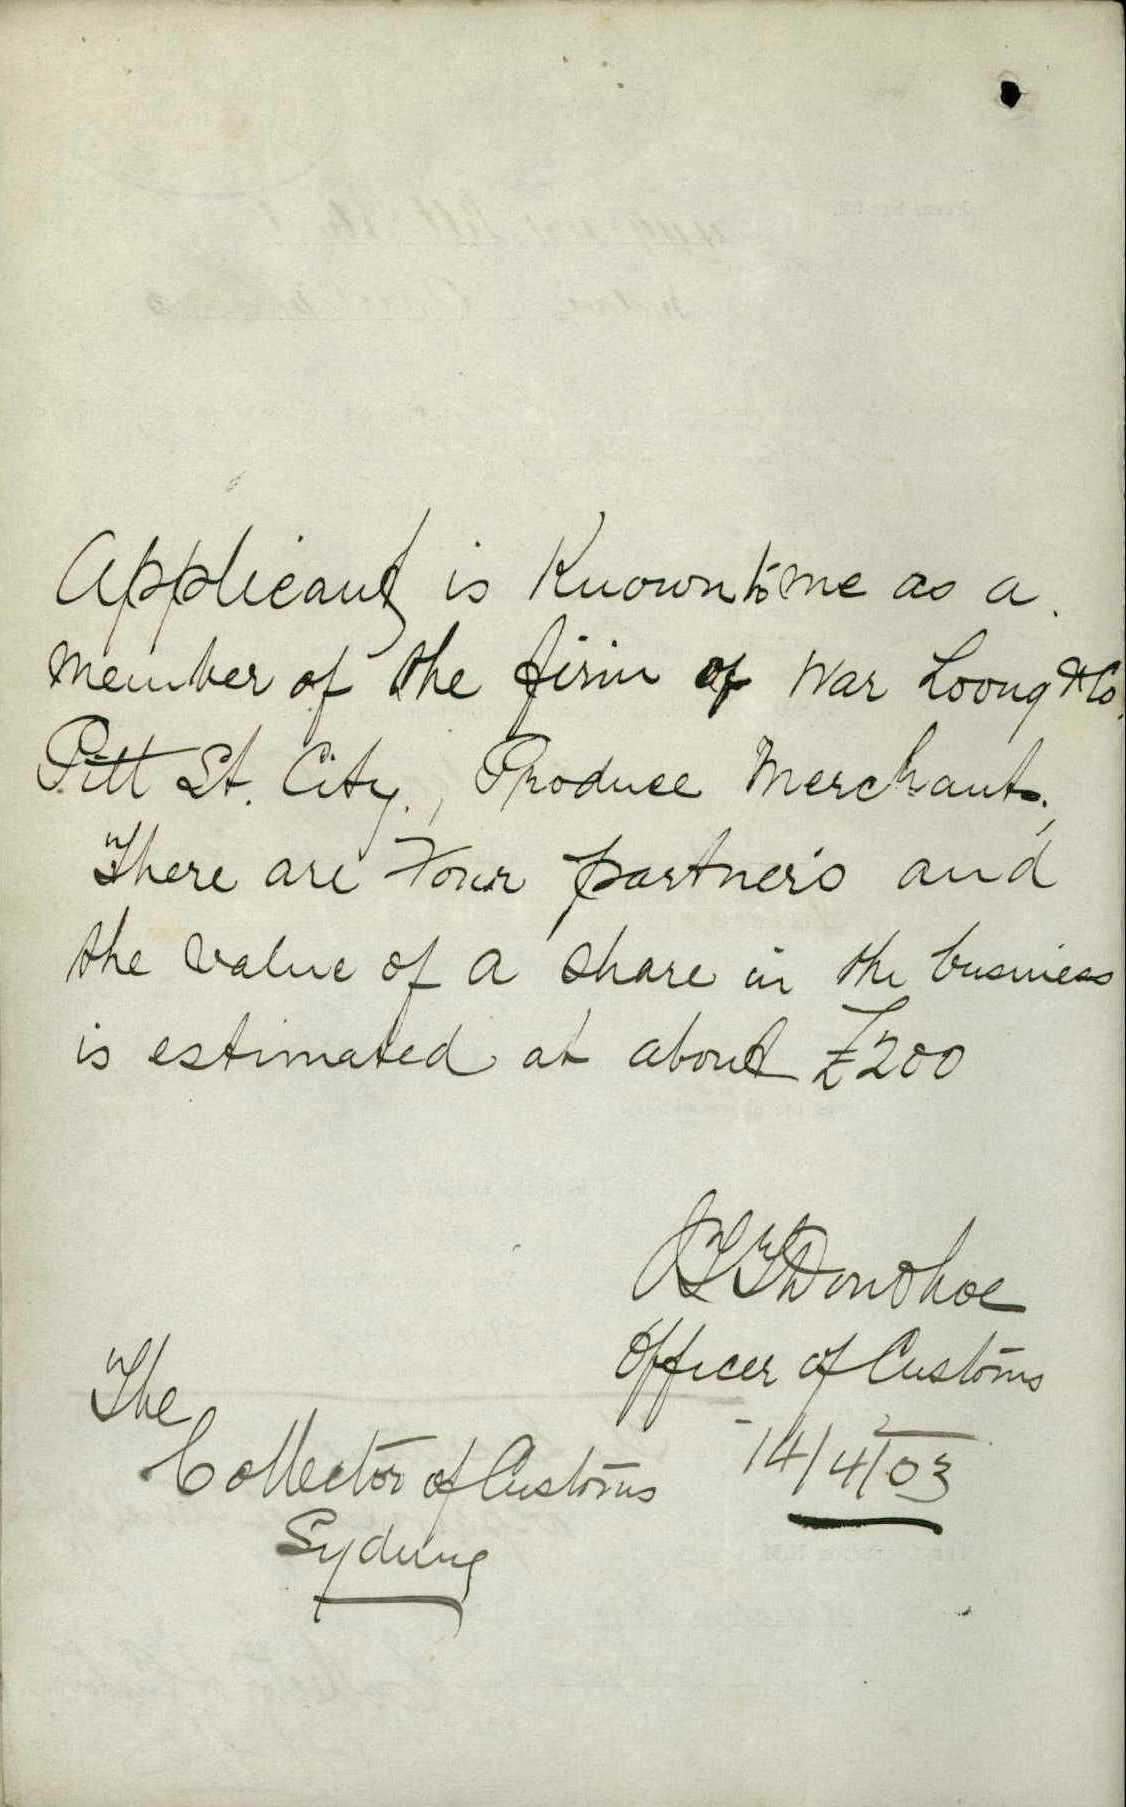 Applicant is Known to me as a
member of the firm of War Loong & Co.
Pitt St. City, Produce Merchants,
There are Four partners and
the value of a share in the business
is estimated at about £200
JTT Donohoe
Officer of Customs
14/4/03
The
Collector of Customs
Sydney